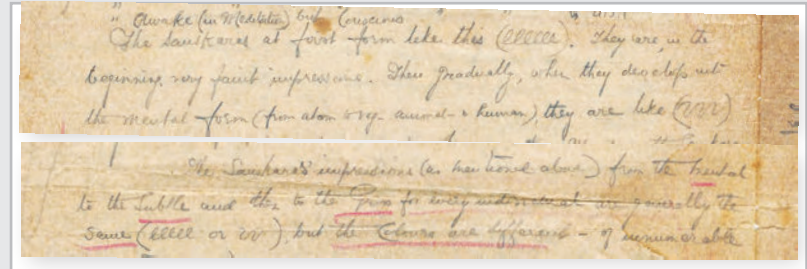 " Awake (in Meditation) but Conscious " "
The Sanskaras at first form like this (eeeeee). They are, in the
beginning, very faint impressions. Then gradually, when they develop into
the mental form (from atom to veg- animal- & human) they are like (vvv)
The Sanskaras' impressions (as mentioned above) from the Mental
to the Subtle and then to the Gross for every individual are generally the
same (eeeee or vv), but the Colours are different - of innumerable